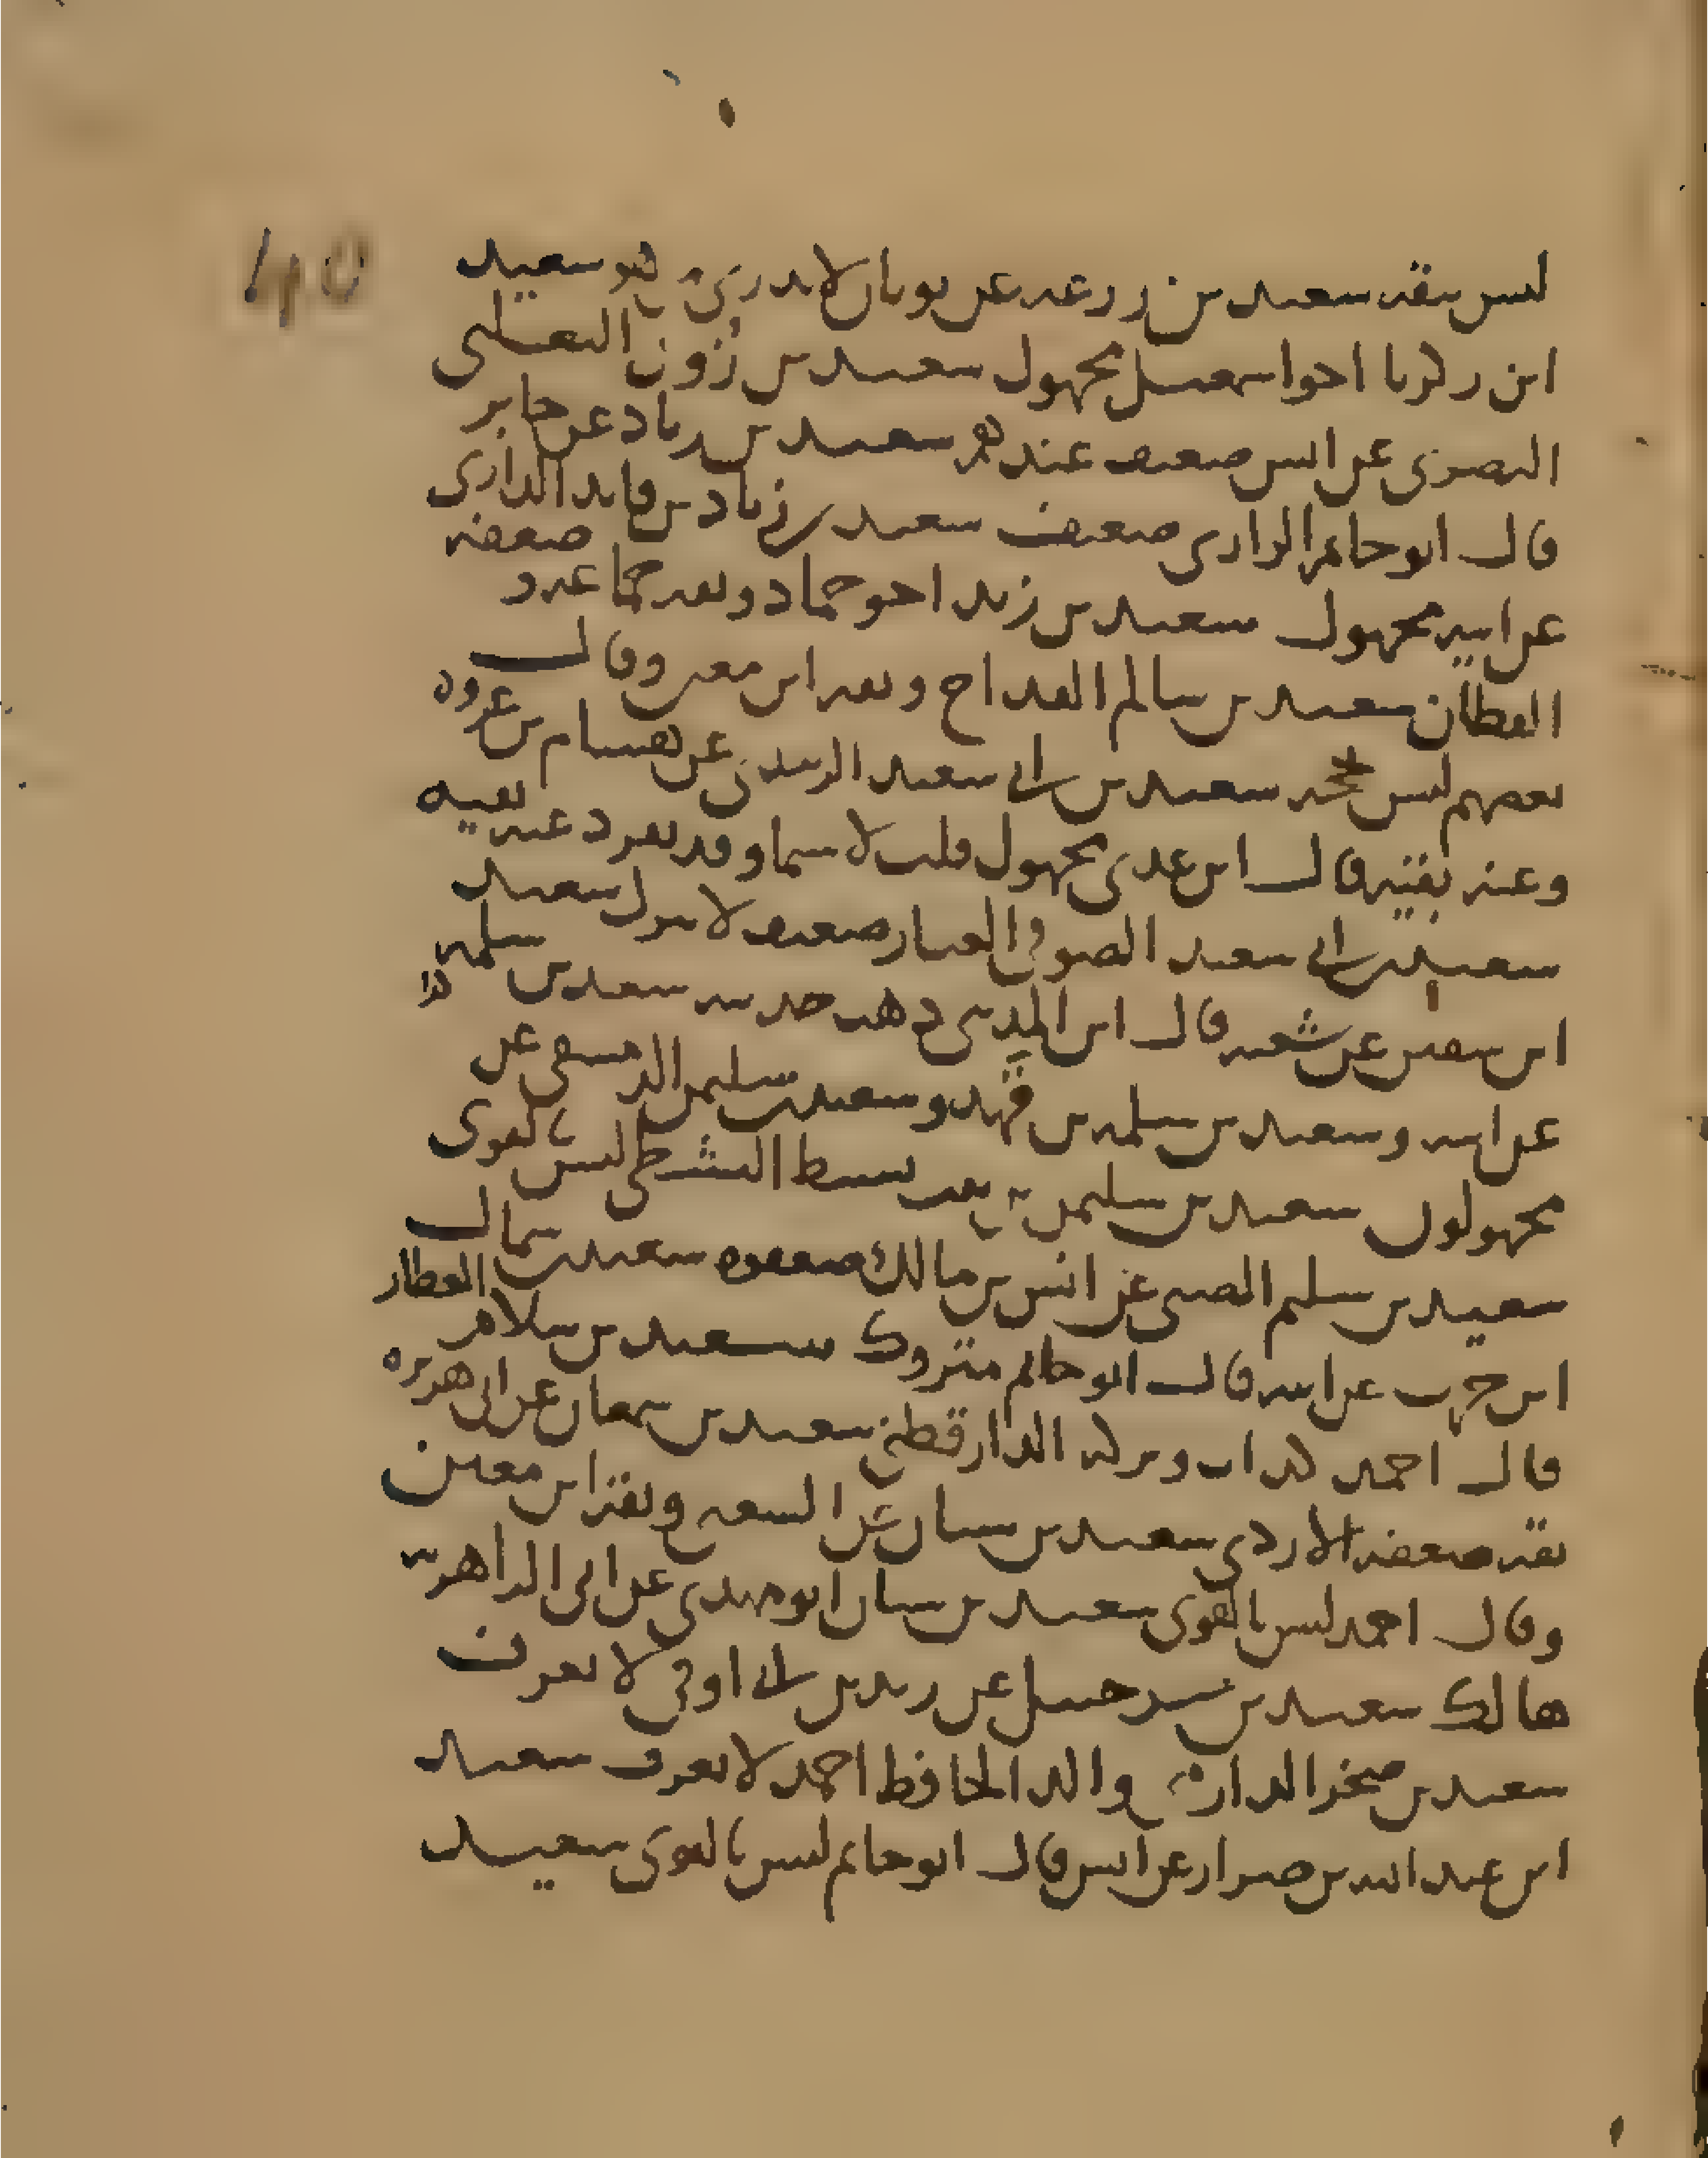 ليس بثقة سعيد بن زرعة عن ثوبان لا يدرى من هو سعيد
ابن زكريا اخو اسمعيل مجهول سعيد بن زون الثعلبي
البصرى عن انس ضعيف عندهم سعيد بن زياد عن جابر
قال ابو حاتم الرازى ضعيف سعيد بن زياد بن فايد الدارى
عن ابيه مجهول سعيد بن زيد اخو حماد وثقه جماعة و ضعفه
القطان سعيد بن سالم القداح وثقه ابن معين وقال
بعضهم ليس بحجة سعيد بن ابي سعيد الزبيدى عن هشام بن عروة
وعنه بقية قال ابن عدى مجهول قلت لا سيما وقد تفرد عنه بقية
سعيد بن ابي سعيد الصوفى العيار ضعيف لا يترك سعيد
ابن سفين عن شعبة قال ابن المدينى ذهب حديثه سعيد بن سلمة
عن ابيه وسعيد بن سلمة بن فهد وسعيد بن سليمن الدمشقى عن
مجهولون سعيد بن سليمن بن نشيط النشيطى ليس بالقوى
سعيد بن سليم الضبى عن انس بن مالك ضعفوه سعيد بن سماك
ابن حرب عن ابيه قال ابو حاتم متروك سعيد بن سلام العطار
قال احمد كذاب وتركه الدارقطني سعيد بن سمعان عن ابى هريرة
ثقة ضعفه الازدى سعيد بن سنان من الشيعة وثقه ابن معين
وقال احمد ليس بالقوى سعيد بن سنان ابو مهدى عن ابى الزاهرية
هالك سعيد بن شرحبيل عن زيد بن ابي اوفى لا يعرف
سعيد بن صخر الدارمى والد الحافظ احمد لا يعرف سعيد
ابن عبد الله بن ضرار عن انس قال ابو حاتم ليس بالقوى سعيد